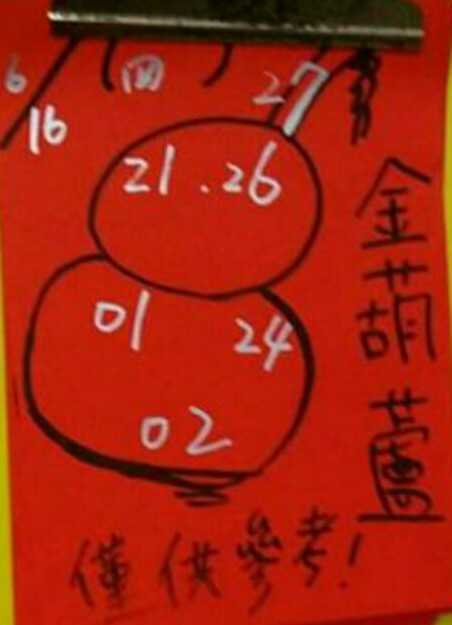 6/16 (四)
27
21.26
01 24
02
金葫蘆
僅供參考!